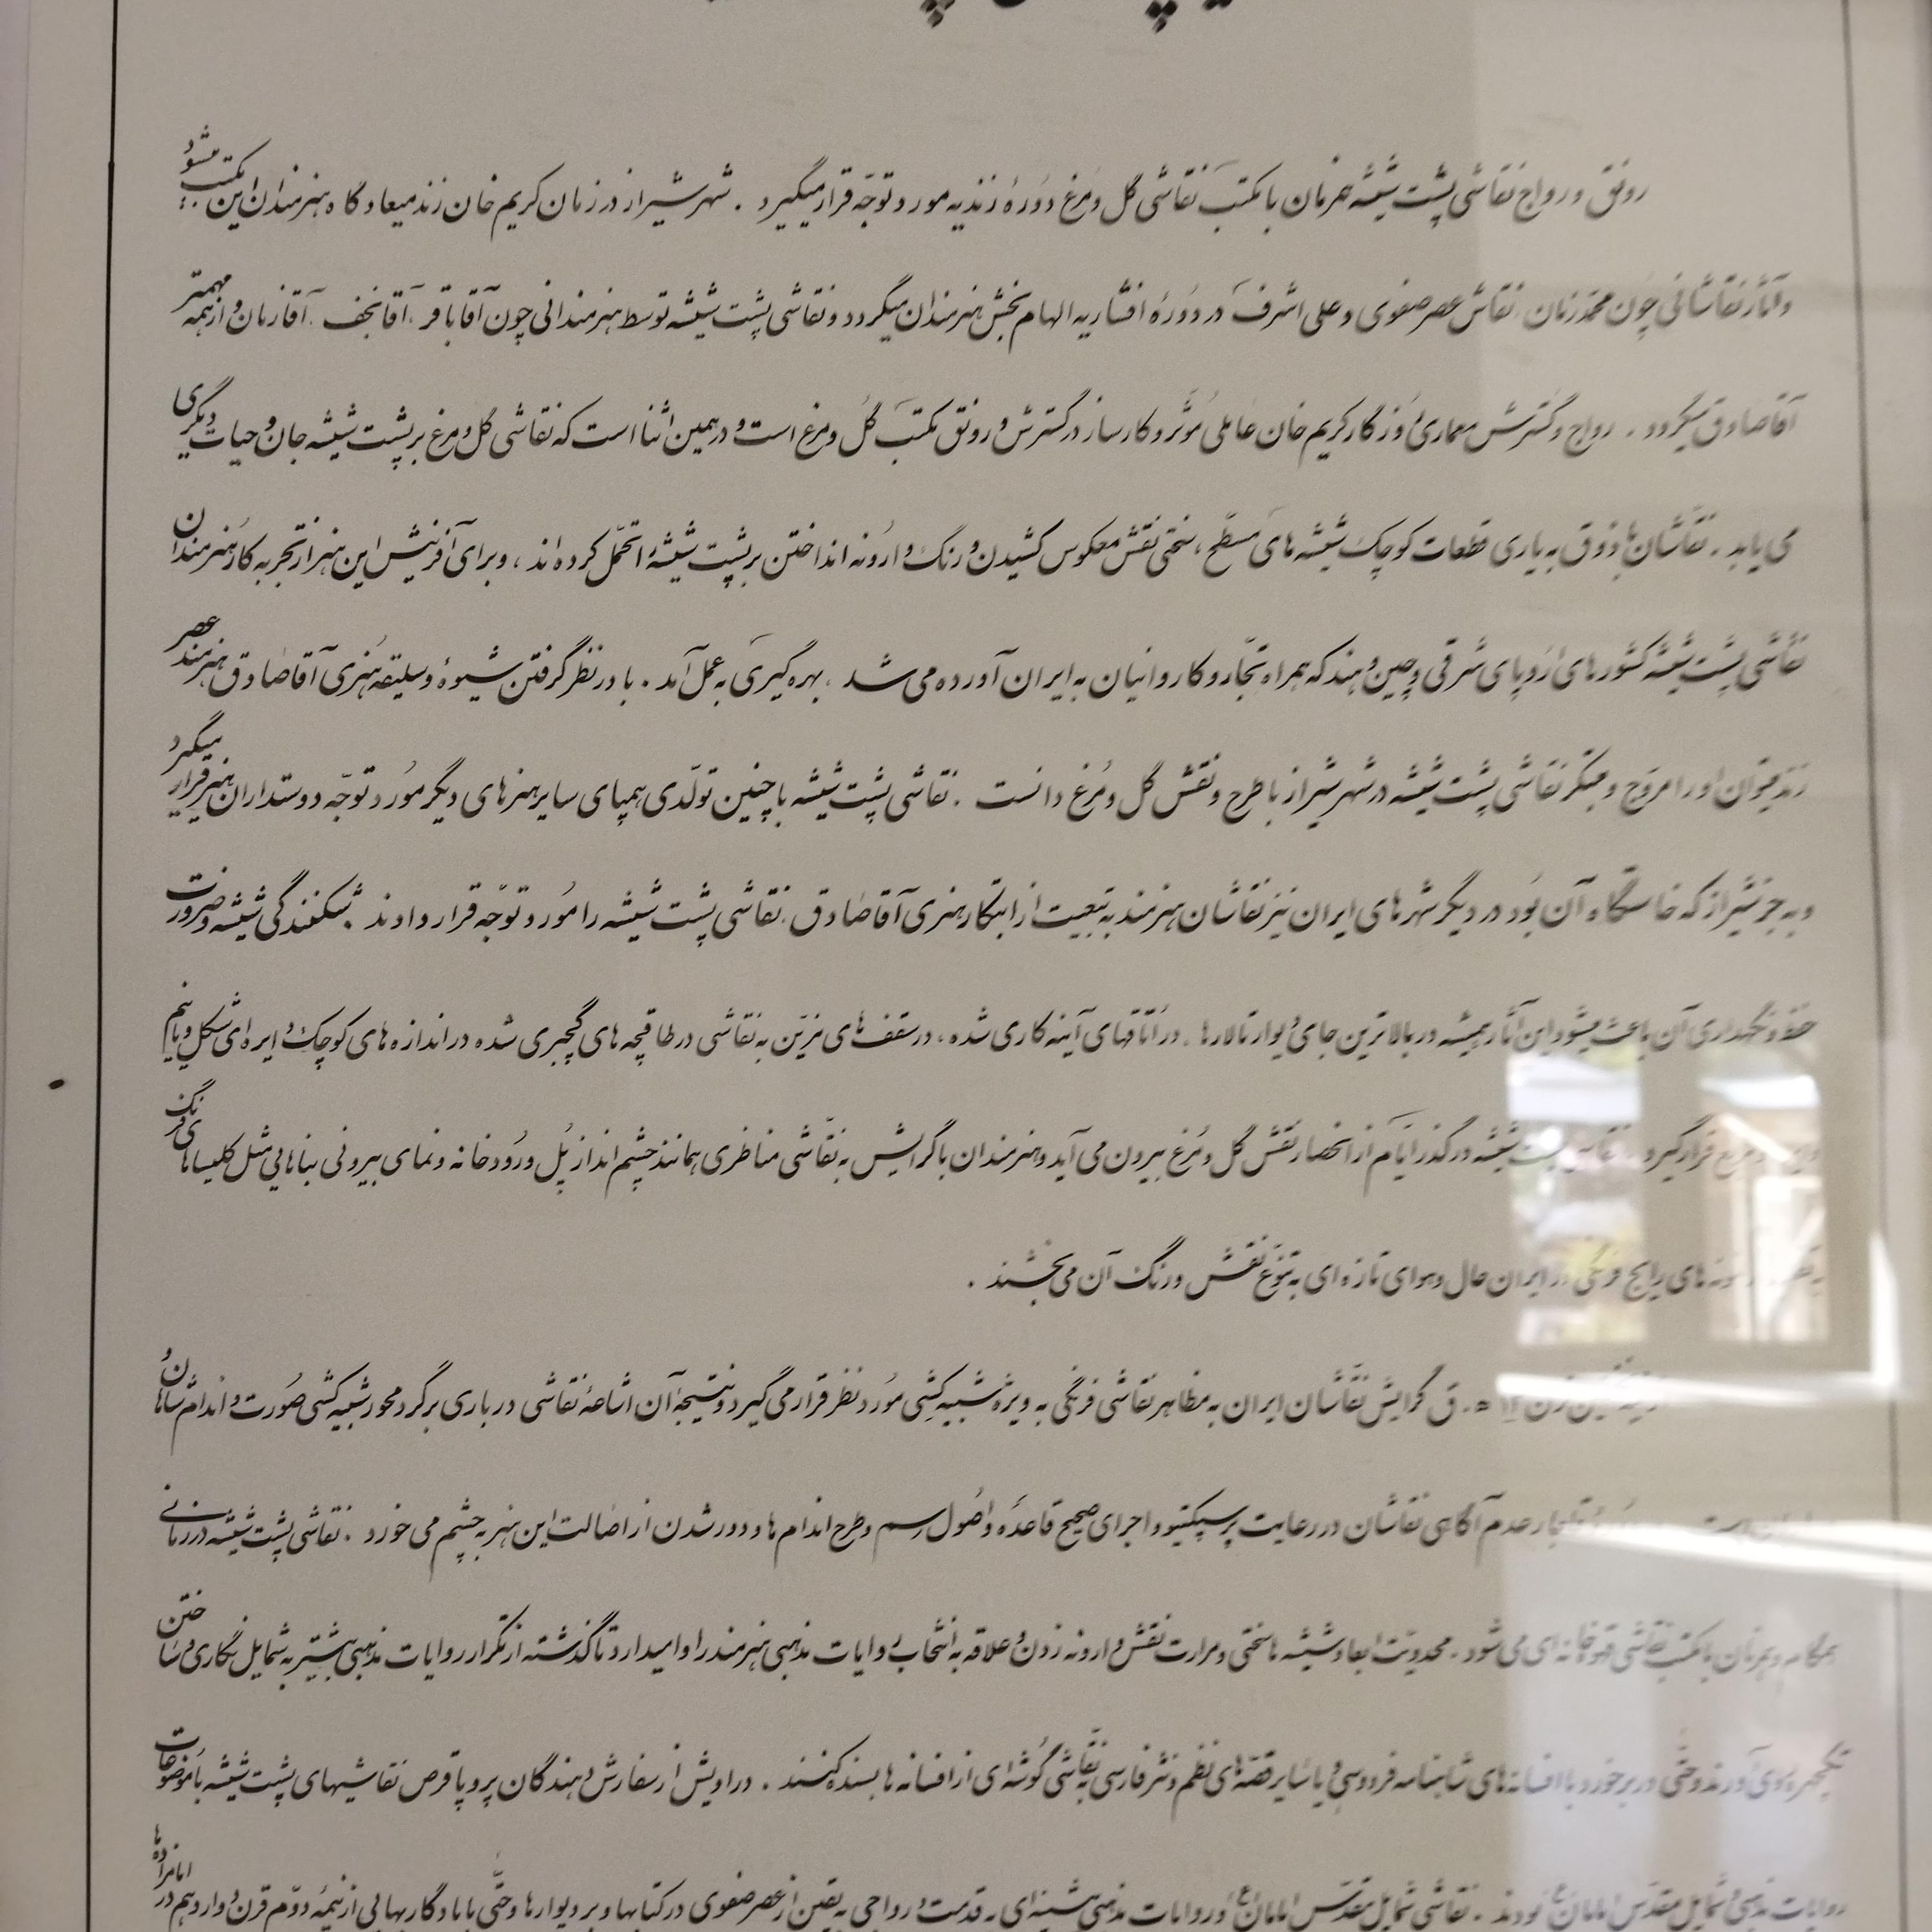 رونق و رواج نقاشی پشت شیشه همزمان با مکتب نقاشی گل و مرغ دورهٔ زندیه مورد توجّه قرار میگیرد . شهر شیراز در زمان کریم خان زند میعادگاه هنرمندان این مکتب میشود
و آثار نقاشانی چون محمّد زمان نقاش عصر صفوی و علی اشرف در دورهٔ افشاریه الهام بخش هنرمندان میگردد و نقاشی پشت شیشه توسط هنرمندانی چون آقا باقر ، آقا نجف ، آقا زمان و از همه مهمتر
آقا صادق میگردد . رواج و گسترش معماری روزگار کریم خان عاملی مؤثر و کارساز در گسترش و رونق مکتب گل و مرغ است و در همین اثنا است که نقاشی گل و مرغ بر پشت شیشه جان و حیات دیگری
می یابد . نقاشان با ذوق به یاری قطعات کوچک شیشه های مسطح ، سختی نقش معکوس کشیدن و رنگ وارونه انداختن بر پشت شیشه را تحمّل کرده اند ، و برای آفرینش این هنر از تجربه کار هنرمندان
نقاشی پشت شیشه کشورهای اروپای شرقی و چین و هند که همراه تجّار و کاروانیان به ایران آورده می شد ، بهره گیری به عمل آمد . با در نظر گرفتن شیوهٔ و سلیقه هنری آقا صادق هنرمند عصر
زند میتوان او را مروّج و مبتکر نقاشی پشت شیشه در شهر شیراز با طرح و نقش گل و مرغ دانست . نقاشی پشت شیشه با چنین تولّدی همپای سایر هنرهای دیگر مورد توجّه دوستداران هنر قرار میگیرد
و به جز شیراز که خاستگاه آن بود در دیگر شهرهای ایران نیز نقاشان هنرمند به تبعیت از ابتکار هنری آقا صادق ، نقاشی پشت شیشه را مورد توجّه قرار دادند . شکنندگی شیشه و ضرورت
حفظ و نگهداری آن باعث میشود این آثار همیشه در بالاترین جای دیوار تالارها ، در اتاقهای آینه کاری شده ، در سقف های مزیّن به نقاشی در طاقچه های گچبری شده در اندازه های کوچک دایره ای شکل و یا نیم
قرار گیرد . نقاشی پشت شیشه در گذر ایّام از انحصار نقش گل و مرغ بیرون می آید و هنرمندان با گرایش به نقّاشی مناظری همانند چشم انداز پل و رودخانه و نمای بیرونی بناهایی مثل کلیساهای فرنگ
های رایج فرنگی در ایران حال و هوای تازه ای به تنوّع نقش و رنگ آن می بخشند .
قرن ۱۲ ه . ق گرایش نقّاشان ایران به مظاهر نقاشی فرنگی به ویژه شبیه کشی مورد نظر قرار می گیرد و نتیجهٔ آن اشاعهٔ نقاشی درباری برگرد محور شبیه کشی صورت و اندام شاهان و
عدم آگاهی نقاشان در رعایت پرسپکتیو و اجرای صحیح قاعده و اصول رسم و طرح اندام ها و دور شدن از اصالت این هنر به چشم می خورد . نقاشی پشت شیشه در زمانی
همگام و همزمان با مکتب نقاشی قهوه خانه ای می شود . محدودیّت ابعاد شیشه ها سختی و مرارت نقش وارونه زدن و علاقه به انتخاب روایات مذهبی هنرمند را وامیدارد تا گذشته از تکرار روایات مذهبی بیشتر به شمایل نگاری و ساختن
تکچهره روی آورند و حتّی در برخورد با افسانه های شاهنامه فردوسی و یا سایر قصّه های نظم و نثر فارسی به نقاشی گوشه ای از افسانه ها بسنده کنند . دراویش از سفارش دهندگان پر و پا قرص نقاشیهای پشت شیشه با موضوعات
روایات مذهبی و شمایل مقدّس امامان (ع) بودند . نقاشی شمایل مقدّس امامان (ع) و روایات مذهبی شیشه ای ، قدمت و رواجی به یقین از عصر صفوی در کتابها و بر دیوارها و حتّی با یادگارهایی از نیمهٔ دوّم قرن دوازدهم در امامزاده ها